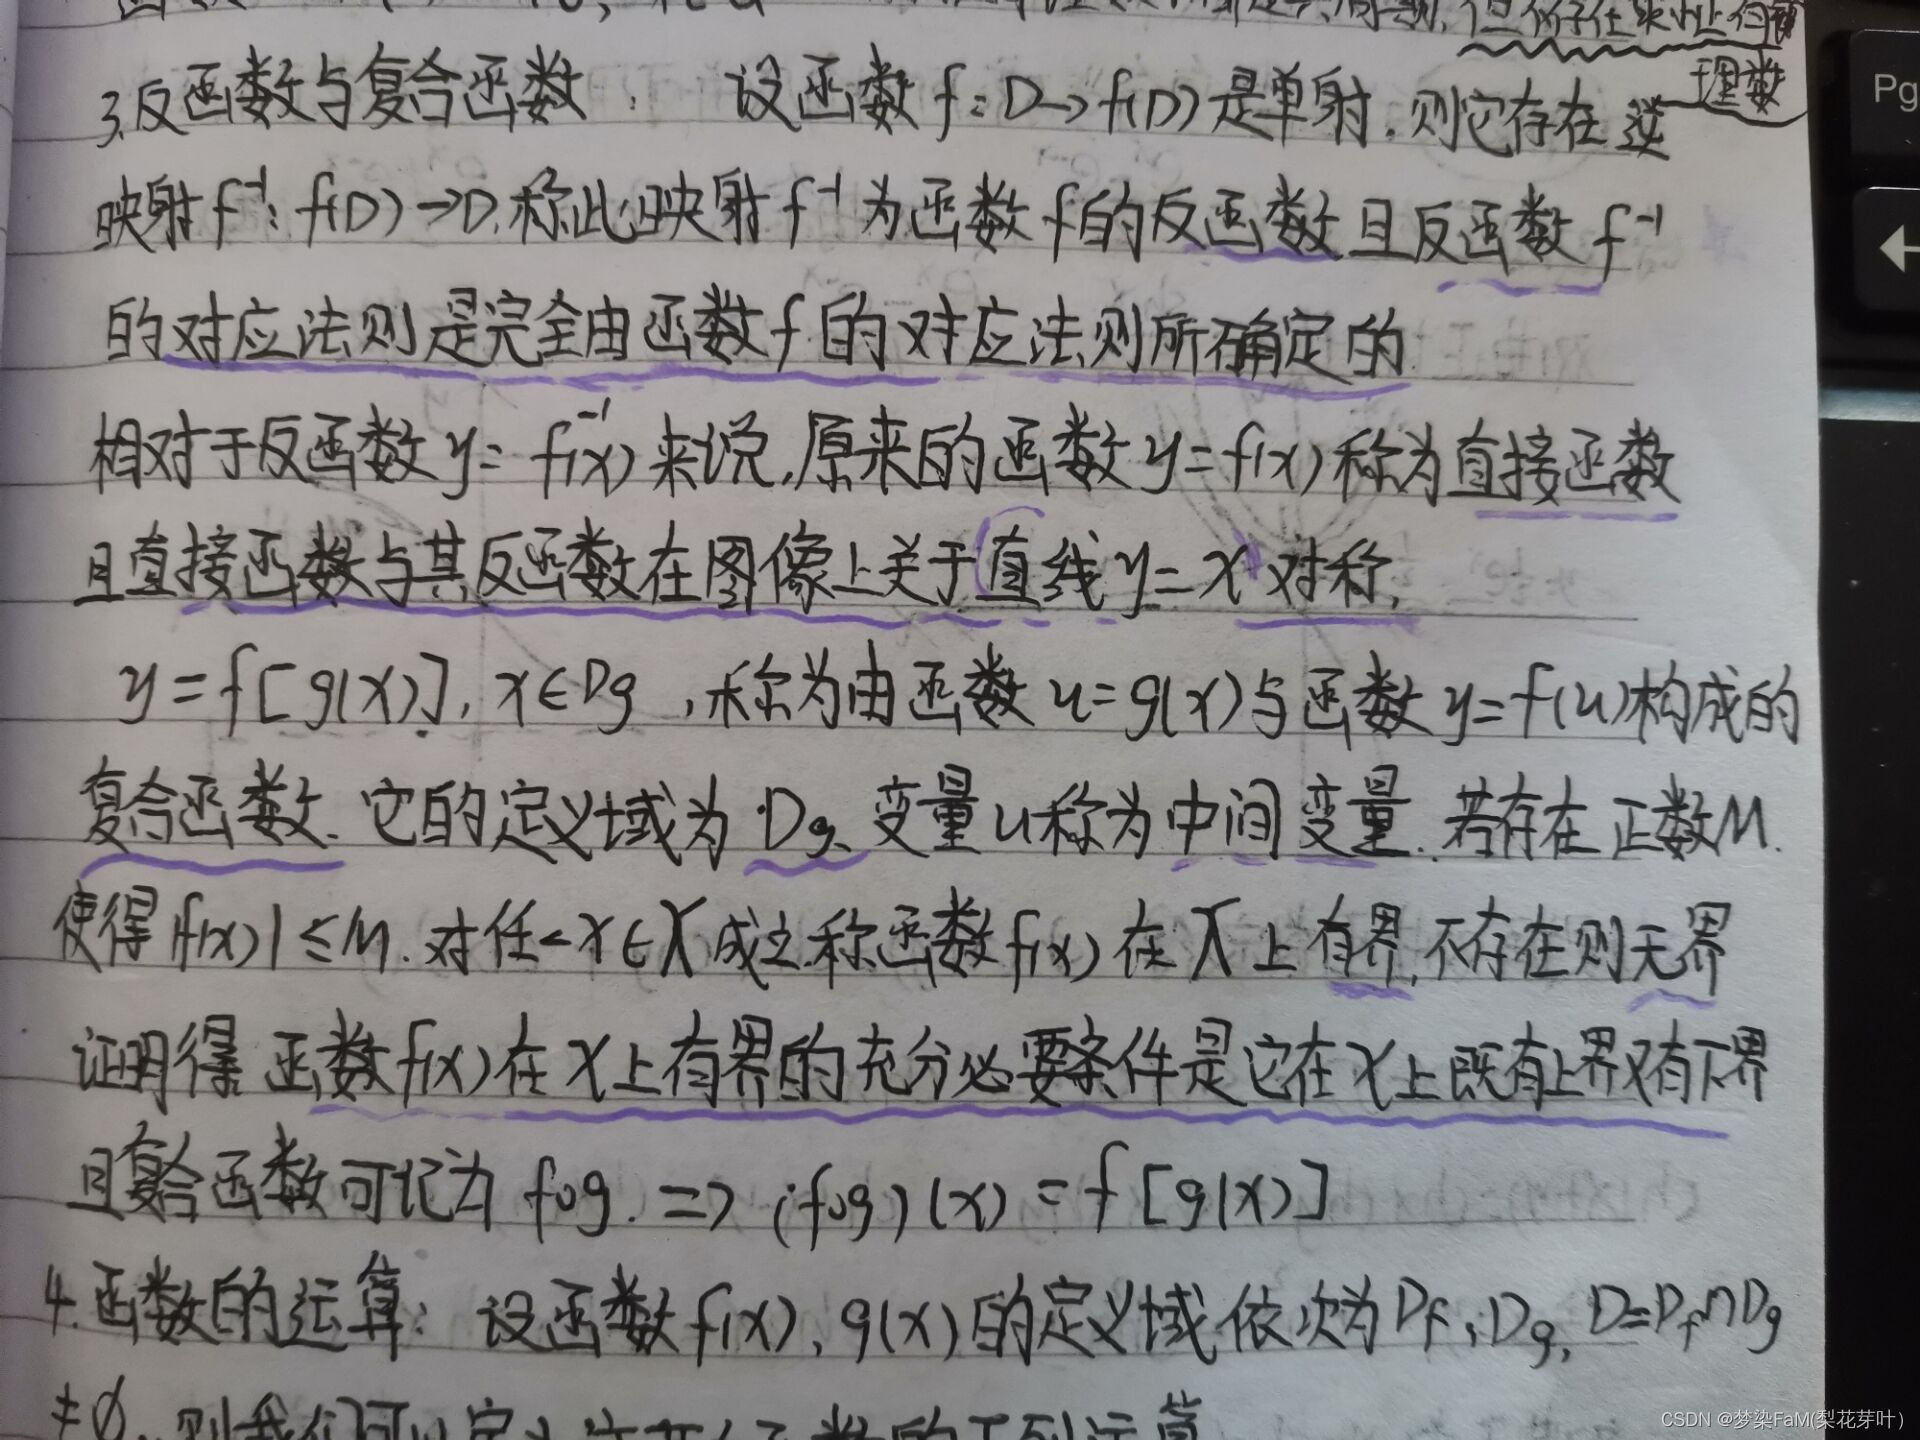 但不存在最小正周期
理数
3.反函数与复合函数： 设函数f:D→f(D)是单射.则它存在逆
映射f⁻¹:f(D)→D.称此映射f⁻¹为函数f的反函数且反函数f⁻¹
的对应法则是完全由函数f的对应法则所确定的
相对于反函数y=f⁻¹(x)来说.原来的函数y=f(x)称为直接函数
且直接函数与其反函数在图像上关于直线y=x对称.
y=f[g(x)],x∈Dg,称为由函数u=g(x)与函数y=f(u)构成的
复合函数.它的定义域为Dg.变量u称为中间变量.若存在正数M.
使得|f(x)|≤M.对任一x∈X成立.称函数f(x)在X上有界,不存在则无界
证明得 函数f(x)在X上有界的充分必要条件是它在X上既有上界又有下界
且复合函数可记为 fog. => (fog)(x)=f[g(x)]
4.函数的运算: 设函数f(x),g(x)的定义域依次为Df,Dg,D=Df∩Dg
≠∅,则我们可以定义这两个函数的下列运算
Pg
CSDN @梦染FaM(梨花芽叶)